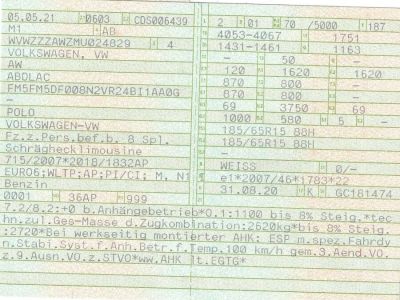 05.05.21 0603 CDS006439 2 01 70 /5000 187
M1 AB 4053-4067 1751
WVWZZZAWZMU024829 4 1431-1461 1163
VOLKSWAGEN, VW – 50 –
AW 120 1620 1620
ABOLAC 870 800 –
FM5FM5DF008N2VR24BI1AA0G 870 800 –
– 69 3750 69
POLO 1000 580 5 –
VOLKSWAGEN-VW 185/65R15 88H
Fz.z.Pers.bef.b. 8 Spl. 185/65R15 88H
Schräghecklimousine –
715/2007*2018/1832AP WEISS 0/–
EURO6;WLTP;AP;PI/CI; M, N1 e1*2007/46*1783*22
Benzin 31.08.20 K GC181474
0001 36AP 999
7.2/8.2:+0 b.Anhängebetrieb*O.1:1100 bis 8% Steig.*tec
hn.zul.Ges-Masse d.Zugkombination:2620kg*bis 8% Steig.
:2720*Bei werkseitig montierter AHK: ESP m.spez.Fahrdy
n.Stabi.Syst.f.Anh.Betr.f.Temp.100 km/h gem.3.Aend.VO.
z.9.Ausn.VO.z.STVO*ww.AHK lt.EGTG*